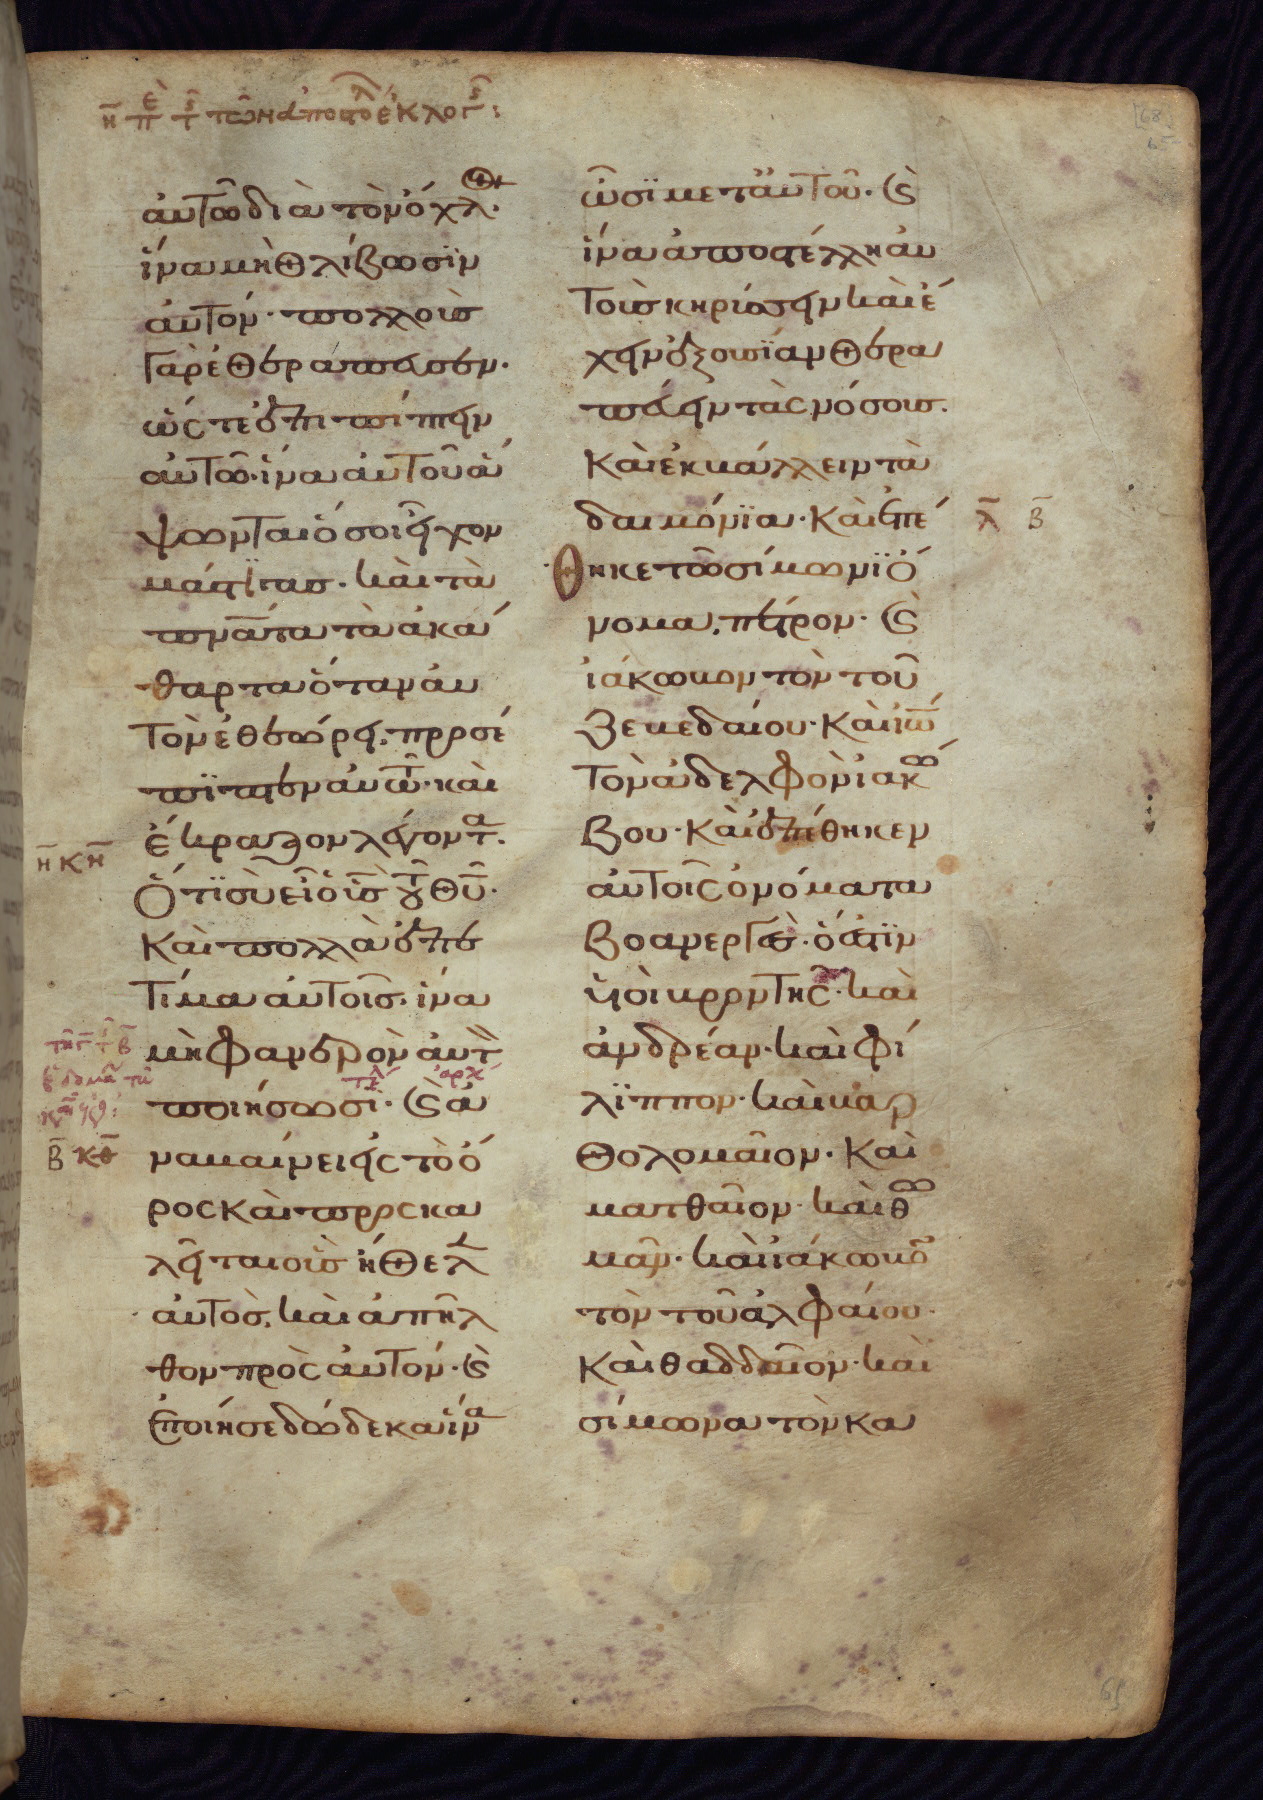 η πε τς τῶν ἀποστόλ ἐκλογῆς:
ἀυτῶ διὰ τὸν ὄχλ·
ἵνα μὴ θλίβωσϊν
ἀυτόν· πολλοὺσ
γὰρ ἐθεράπευσεν·
ὥςτε ἐπιπίπτειν
ἀυτῶ· ἵνα ἀυτοῦ ἅ
ψωνται ὅσοι εἶχον
μάστϊγας· και τὰ
πνα̅τα τὰ ἀκά
θαρτα ὅταν ἀυ
τὸν ἐθεώρει, προσέ
πϊπτεν ἀυτῶ· καὶ
ἔκραζον λέγοντα·
Ὅτϊ σὺ εἶ ὁ υ̅ς τοῦ θυ̅·
Καὶ πολλὰ ἐπε
τίμα ἀυτοῖσ· ἵνα
μὴ φανερὸν ἀυτ
ποιήσωσϊ· Καὶ ἀ
ναβαίνει εἰς τὸ ὄ
ρος καὶ προσκα
λεῖται οὓσ ἤθελ
ἀυτός, καὶ ἀπῆλ
θον πρὸς ἀυτόν· Καὶ
ἐποίησε δώδεκα ἵνα
ὦσϊ μετ ἀυτοῦ· Καὶ
ἵνα ἀποστέλλη ἀυ
τοὺσ κηρύσσειν καὶ ἔ
χειν ἐξουσϊαν θερα
πεύειν τὰς νόσους·
Καὶ ἐκβάλλειν τὰ
δαιμόνϊα· Καὶ ἐπέ
θηκε τῶ σίμωνϊ ὄ
νομα, πέτρον· Καὶ
ἰάκωβον τὸν τοῦ
Ζεβεδαίου· Καὶ ἰω̅
τὸν ἀδελφὸν ἰακώ
βου· Καὶ ἐπέθηκεν
ἀυτοῖς ὀνόματα
βοανεργὲς· ὅ ἐστϊν
υἱοὶ βροντῆς· καὶ
ἀνδρέαν· καὶ φί
λϊππον· καὶ βαρ
θολομαῖον· Καὶ
ματθαῖον· καὶ θω
μᾶν· καὶ ἰάκωβον
τὸν τοῦ ἀλφαίου·
Καὶ θαδδαῖον· καὶ
σίμωνα τὸν κα
λ̅ β̅
η̅ κη̅
β̅ κθ̅
68
65